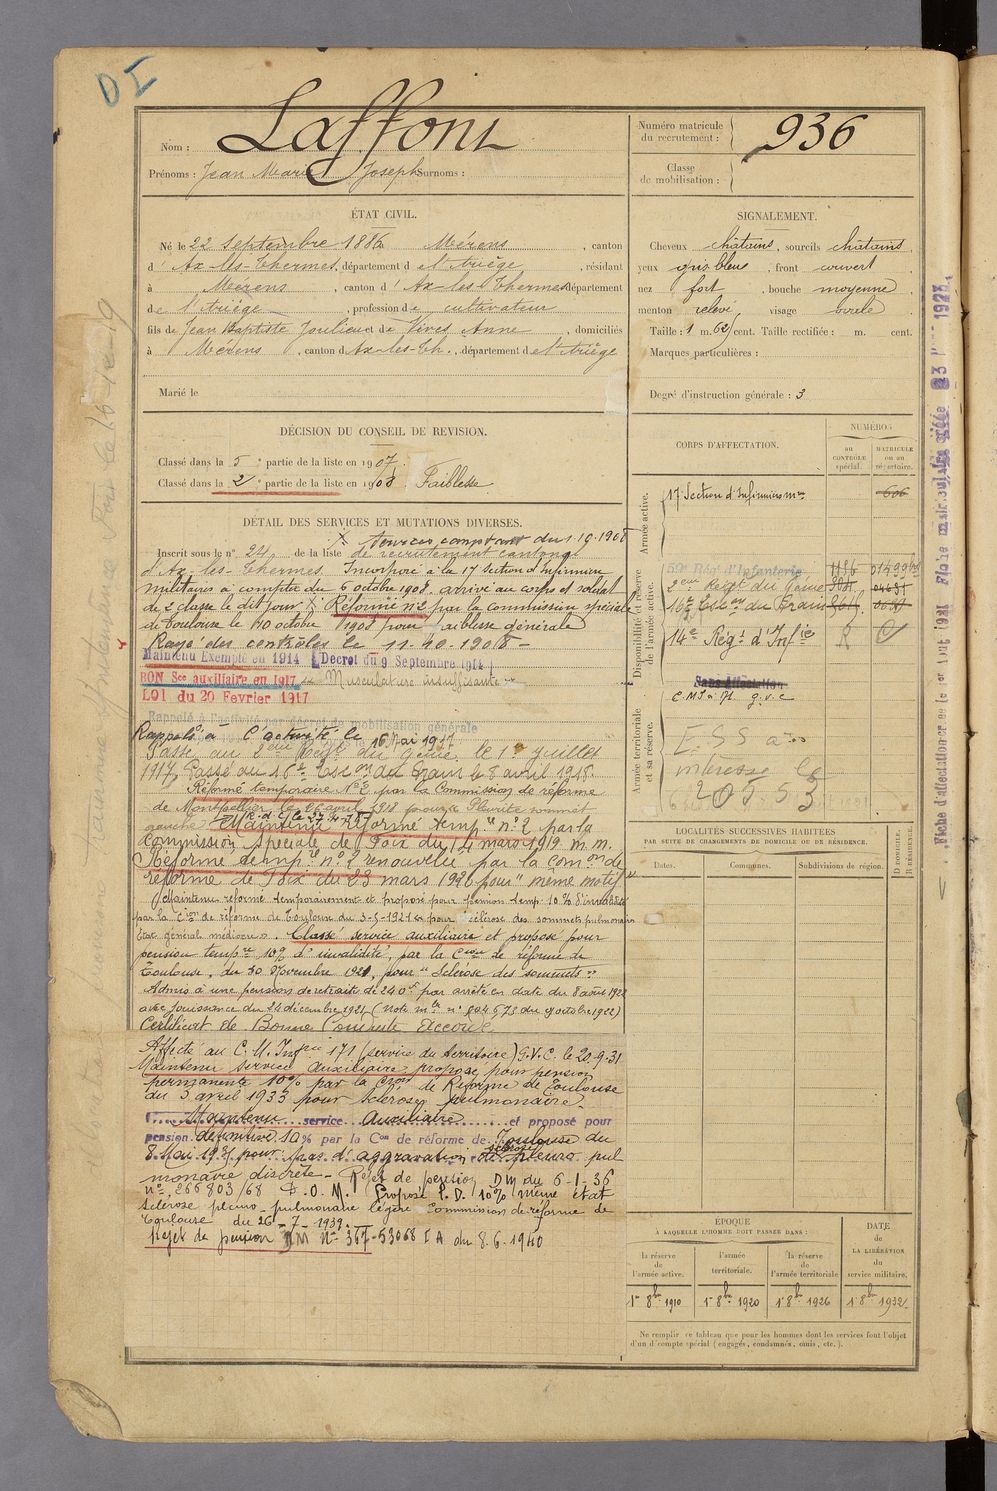 DI
Nom : Laffont
Prénoms : Jean Marie Joseph Surnoms :
Numéro matricule du recrutement : 936
Classe de mobilisation :
ÉTAT CIVIL.
Né le 22 Septembre 1886 Mérens, canton
d' Ax-les-Thermes, département de l'Ariège, résidant
à Mérens, canton d' Ax-les-Thermes département
de l'Ariège, profession de cultivateur
fils de Jean Baptiste Joulieu et de Vives Anne, domiciliés
à Mérens, canton d'Ax-les-Th., département de l'Ariège
Marié le
SIGNALEMENT.
Cheveux châtains, sourcils châtains,
yeux gris bleu, front couvert
nez fort, bouche moyenne
menton relevé visage ovale
Taille : 1 m. 62 cent. Taille rectifiée : m. cent.
Marques particulières :
Degré d'instruction générale : 3
DÉCISION DU CONSEIL DE REVISION.
Classé dans la 5e partie de la liste en 1907.
Classé dans la 2e partie de la liste en 1908 Faiblesse
DÉTAIL DES SERVICES ET MUTATIONS DIVERSES.
X Services comptant du 1.10.1908
Inscrit sous le n° 24 de la liste de recrutement cantonal
d'Ax-les-Thermes. Incorporé à la 17 Section d'Infirmiers
militaires à compter du 6 octobre 1908. arrivé au corps et soldat
de 2 classe le dit jour X Réformé n°2 par la commission spéciale
de Toulouse le 10 octobre 1908 pour faiblesse générale
Rayé des contrôles le 11-10-1908 -
Maintenu Exempté en 1914 (Décret du 9 Septembre 1914)
BON Sce auxiliaire en 1917 " Musculature insuffisante "
LOI du 20 Fevrier 1917
Rappelé à l'activité par décret de mobilisation générale
Rappelé à l'activité le 16 Mai 1917
Passé au 2eme Régt du Génie le 1er Juillet
1917, Passé au 16e Escon du Train le 8 avril 1918.
Réformé temporaire N°2 par la Commission de réforme
de Montpellier le 26 avril 1918 pour Pleurite sommet
gauche Maintenu réformé temp.re n° 2 par la
Commission Spéciale de Foix du 14 mars 1919. m. m.
Réforme temp.re n° 2 renouvelée par la Comon de
réforme de Foix du 23 mars 1920 pour " même motif "
Maintenu réformé temporairement et proposé pour pension temp. 10 % d'invalidité
par la Con de réforme de Toulouse du 3-5-1921 pour " sclérose des sommets pulmonaires
État général médiocre ". Classé service auxiliaire et proposé pour
pension tempre 10% d'invalidité, par la Cion de réforme de
Toulouse, du 30 Novembre 1921, pour " Sclérose des sommets "
Admis à une pension de retraite de 240f par arrêté en date du 8 août 1922
avec jouissance du 24 décembre 1921
Certificat de Bonne Conduite Accordé
Affecté au C. M. Infrie 171 (service du territoire) G.V.C. le 20.9.31
Maintenu service auxiliaire proposé pour pension
permanente 10% par la Cion de Réforme de Toulouse
du 3 avril 1933 pour sclérose pulmonaire.
Maintenu service Auxiliaire et proposé pour
pension définitive 10% par la Con de réforme de Toulouse du
pour pas d'aggravation sclérose pleuro pul
monaire discrète - Rejet de pension DM du 6-1-36
N° 266803/68 F.O.M. Proposé P.D. 10% même état
Sclérose pleuro-pulmonaire légère Commission de réforme de
Toulouse du 26-7-1939.
Rejet de pension DM N° 367-53068 I A du 8.6.1940
CORPS D'AFFECTATION.
NUMÉROS
AU CONTRÔLE spécial.
MATRICULE ou au répertoire.
Armée active.
17 Section d'Infirmiers mres 606
Disponibilité et réserve de l'armée active.
59e Régt d'Infanterie
2eme Régt du Génie
16e Escon du Train
14e Régt d'Infie R
Armée territoriale et sa réserve.
Sans Affectation
C.M.I. n° 71 g.v.c
intéresse le
20553
LOCALITÉS SUCCESSIVES HABITÉES
PAR SUITE DE CHANGEMENTS DE DOMICILE OU DE RÉSIDENCE.
Dates. Communes. Subdivisions de région.
D. DOMICILE.
R. RÉSIDENCE.
ÉPOQUE
À LAQUELLE L'HOMME DOIT PASSER DANS :
la réserve de l'armée active.
l'armée territoriale.
la réserve de l'armée territoriale
DATE DE LA LIBÉRATION du service militaire.
1er 8bre 1910 1er 8bre 1920 1er 8bre 1926 1er 8bre 1932
Ne remplir ce tableau que pour les hommes dont les services font l'objet
d'un d'compte spécial (engagés, condamnés, omis, etc.).